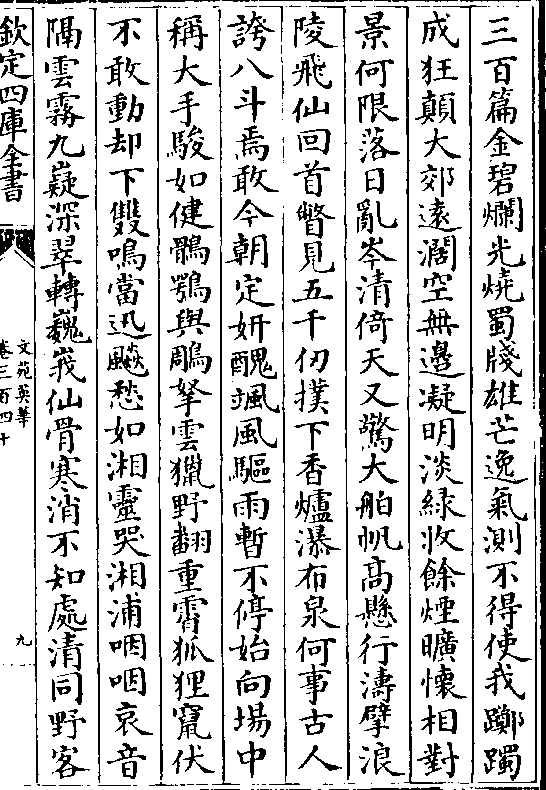 三百篇金碧爛光燒蜀牋雄芒逸氣測不得使我躑躅
成狂顛大郊遠濶空無邊凝明淡緑收餘煙曠懐相對
景何限落日亂岑清倚天又驚大舶帆髙懸行濤擘浪
陵飛仙回首瞥見五千仞撲下香爐瀑布泉何事古人
誇八斗焉敢今朝定妍醜颯風驅雨暫不停始向場中
稱大手駿如健鶻鶚與鵰拏雲獵野翻重霄狐狸竄伏
不敢動却下雙鳴當迅飈愁如湘靈哭湘浦咽咽哀音
隔雲霧九嶷深翠轉巍峩仙骨寒消不知處清同野客
欽定四庫全書
文苑英華
卷三百四十
九